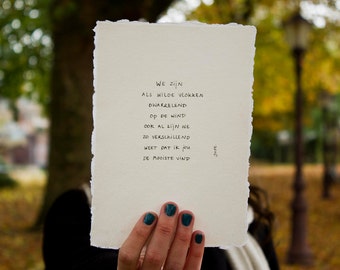 WE ZIJN
ALS WILDE VLOKKEN
DWARRELEND
OP DE WIND
OOK AL ZIJN WE
ZO VERSCHILLEND
WEET DAT IK JOU
DE MOOISTE VIND